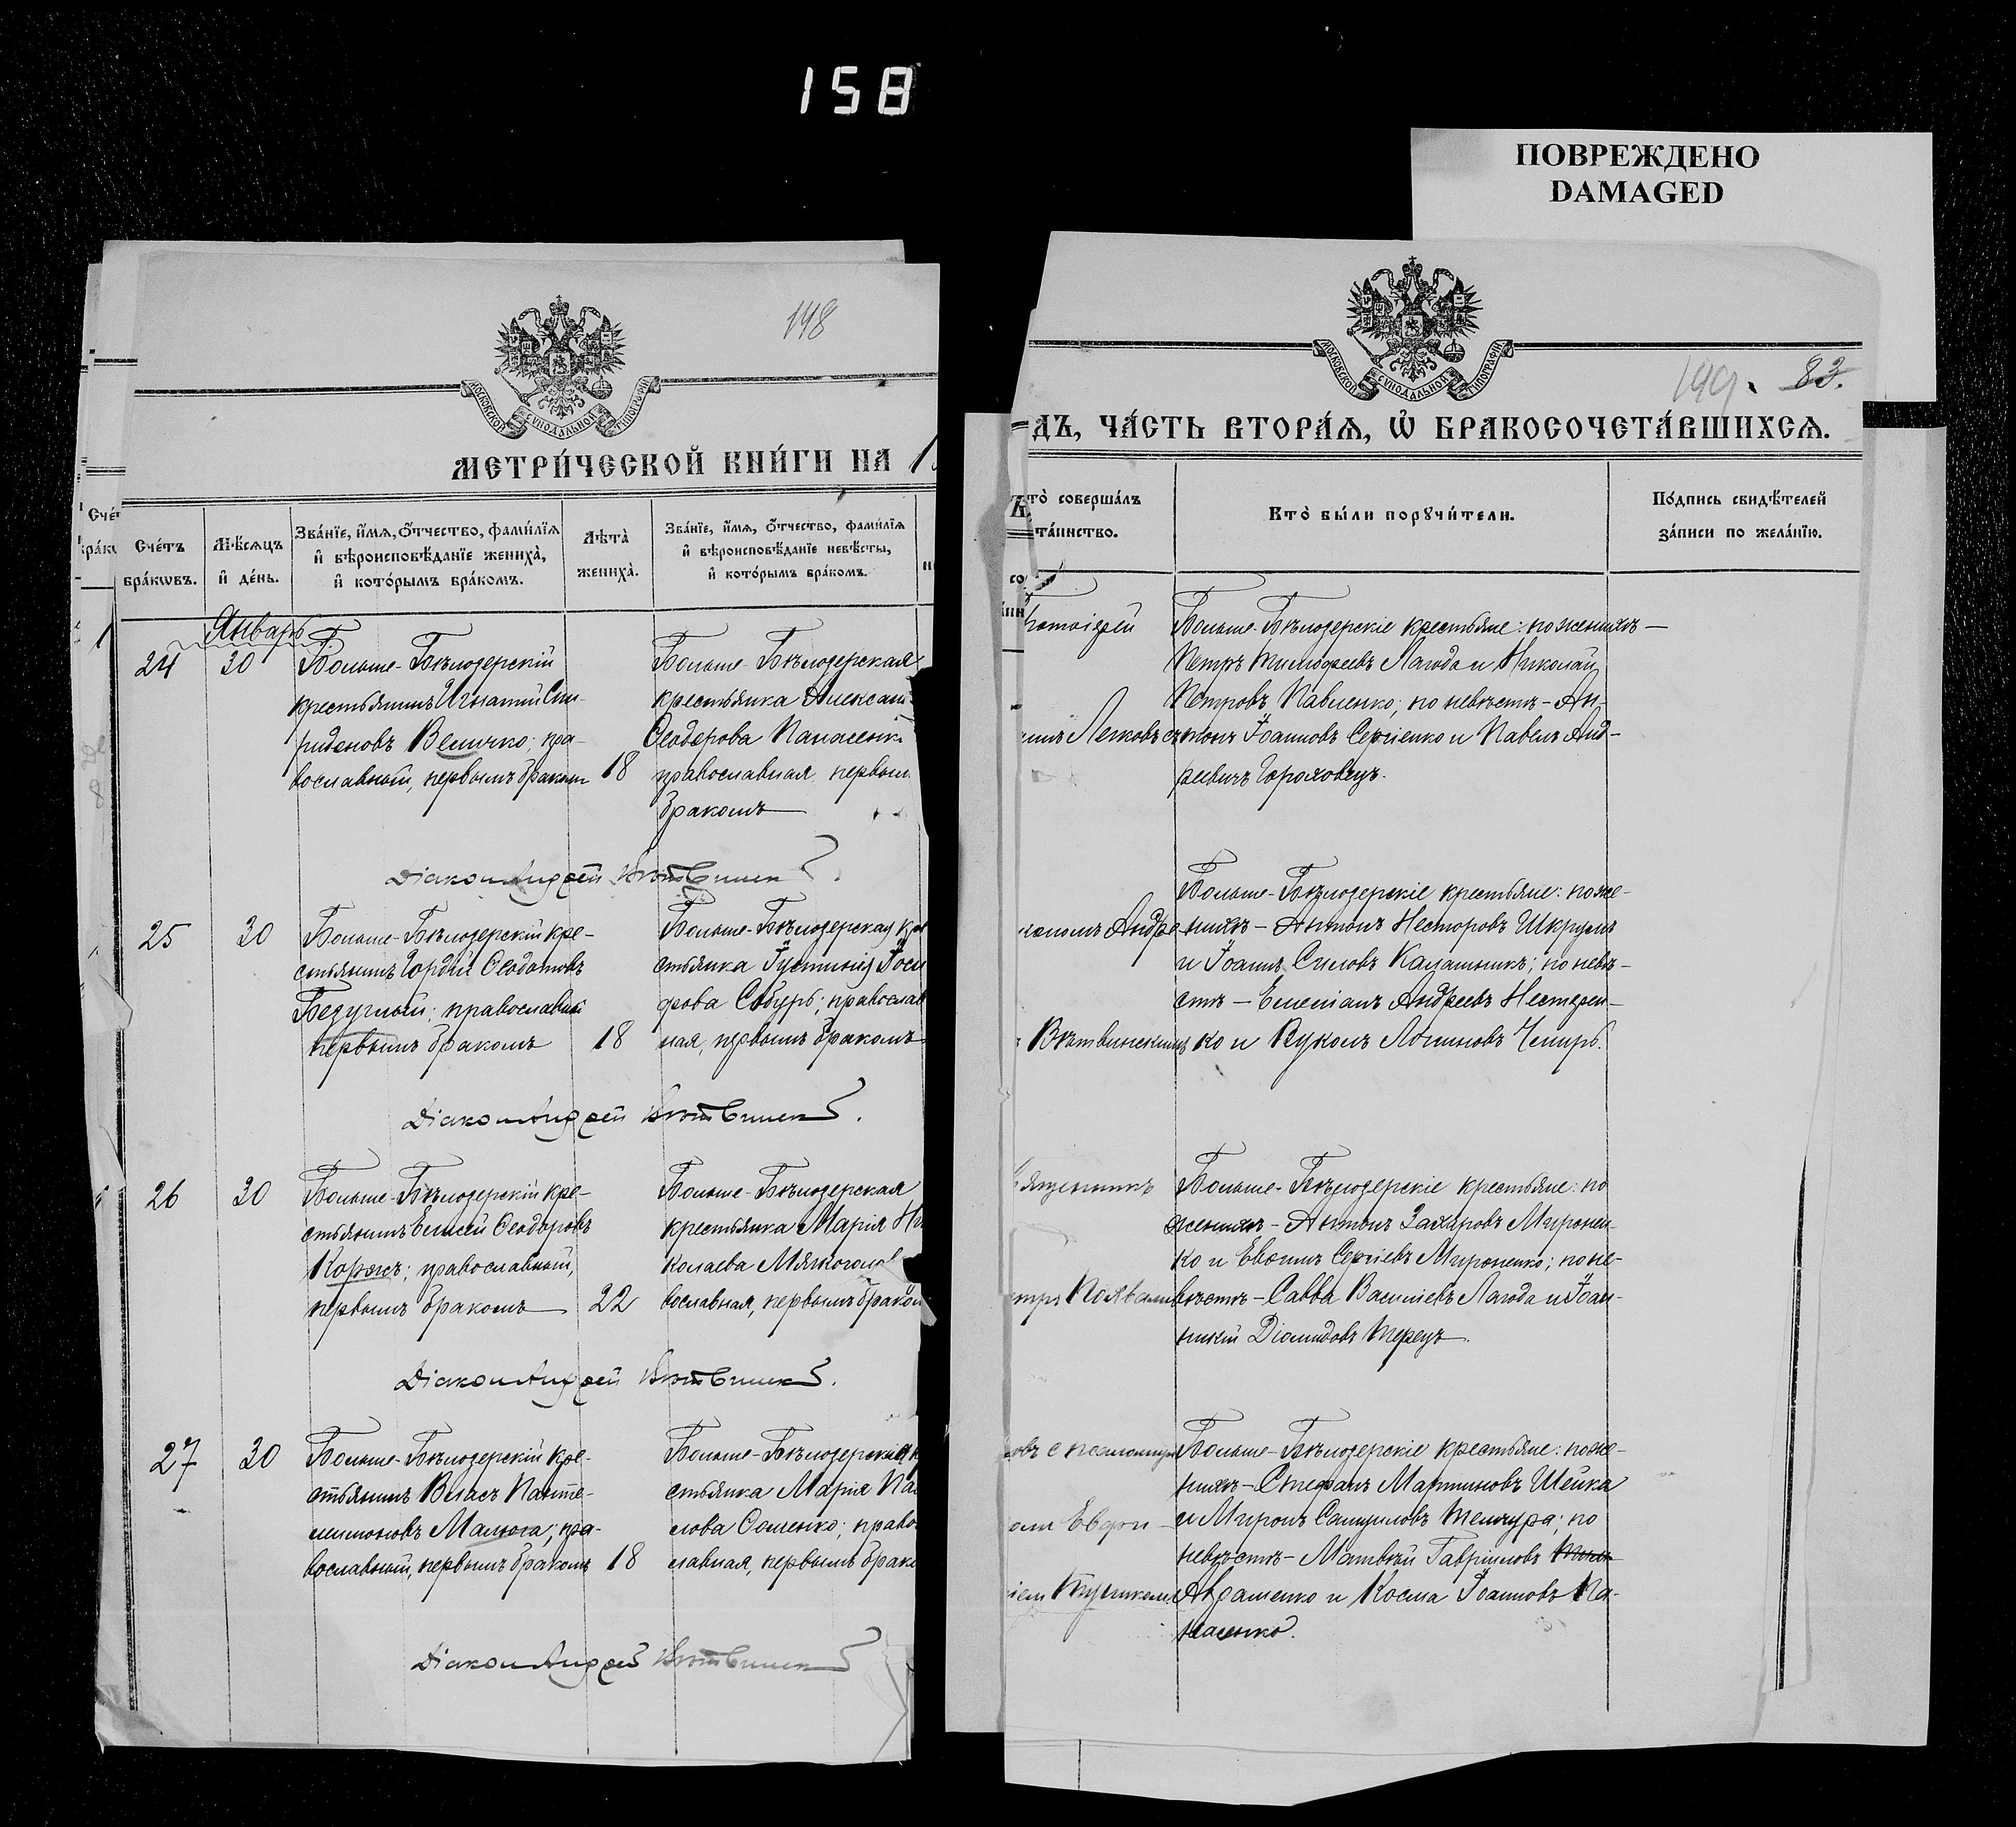 158
ПОВРЕЖДЕНО
DAMAGED
148
МОСКОВСКОЙ СѴНОДАЛЬНОЙ ТИПОГРАФІИ
МЕТРИ́ЧЕСКОЙ КНИ́ГИ НА 1
Сче́тъ бра́кѡвъ.
Мѣ́сяцъ и҆ де́нь.
Зва́нїе, и҆́мя, ѻ҆́тчество, фами́лїя
и҆ вѣроисповѣ́данїе жениха̀,
и҆ кото́рымъ бра́комъ.
Лѣта̀ жениха̀.
Зва́нїе, и҆́мя, ѻ҆́тчество, фами́лїя
и҆ вѣроисповѣ́данїе невѣ́сты,
и҆ кото́рымъ бра́комъ.
Январь
24 30
Больше-Бѣлозерскій
крестьянинъ Игнатій Спи-
ридоновъ Величко; пра-
вославный, первымъ бракомъ
18
Больше-Бѣлозерская
крестьянка Алексан
Ѳеодорова Панасенк
православная, первым
бракомъ
Діаконъ Андрей
25 30
Больше-Бѣлозерскій кре-
стьянинъ Гордій Ѳеодотовъ
Бедуглый; православный
первымъ бракомъ
18
Больше-Бѣлозерская кре
стьянка Іустинія Іоси
фова Собурь; православ
ная, первымъ бракомъ
Діаконъ Андрей
26 30
Больше-Бѣлозерскій кре-
стьянинъ Елисей Ѳеодоровъ
Коржъ; православный,
первымъ бракомъ
22
Больше-Бѣлозерская
крестьянка Марія Ни
колаева
вославная, первымъ браком
Діаконъ Андрей
27 30
Больше-Бѣлозерскій кре-
стьянинъ Власъ Панте-
леимоновъ Малюга; пра-
вославный, первымъ бракомъ
18
Больше-Бѣлозерская к
стьянка Марія Па
лова Соменко; право
славная, первымъ брако
Діаконъ Андрей
МОСКОВСКОЙ СѴНОДАЛЬНОЙ ТИПОГРАФІИ
199. 83.
ДЪ, ЧА́СТЬ ВТОРА́Я, Ѡ҆ БРАКОСОЧЕТА́ВШИХСЯ.
то̀ соверша́лъ
та́инство.
Кто̀ бы́ли порꙋчи́тели.
По́дпись свидѣ́телей
за́писи по жела́нїю.
Больше-Бѣлозерскіе крестьяне: по женихѣ —
Петръ Тимофеевъ Лагода и Николай
Петровъ Павленко; по невѣстѣ – Ан-
тонъ Іоанновъ Сергіенко и Павелъ Анд-
реевичъ Гороховецъ.
Больше-Бѣлозерскіе крестьяне: по же-
нихѣ – Антонъ Несторовъ Шкрумъ
и Іоаннъ Силовъ Калашникъ; по невѣ-
стѣ – Емеліанъ Андреевъ Нестерен-
ко и Вуколъ Логиновъ Чмирь.
Больше-Бѣлозерскіе крестьяне: по
женихѣ – Антонъ Захаровъ Миронен-
ко и Евѳимъ Сергіевъ Мироненко; по не-
вѣстѣ – Савва Василіевъ Лагода и Іоан-
никій Діомидовъ Терецъ.
Больше-Бѣлозерскіе крестьяне: по же-
нихѣ – Стефанъ Мартиновъ Шейка
и Миронъ Самуиловъ Тенчура; по
невѣстѣ – Матвѣй Гавріиловъ
Авраменко и Косма Іоанновъ Па-
насенко.